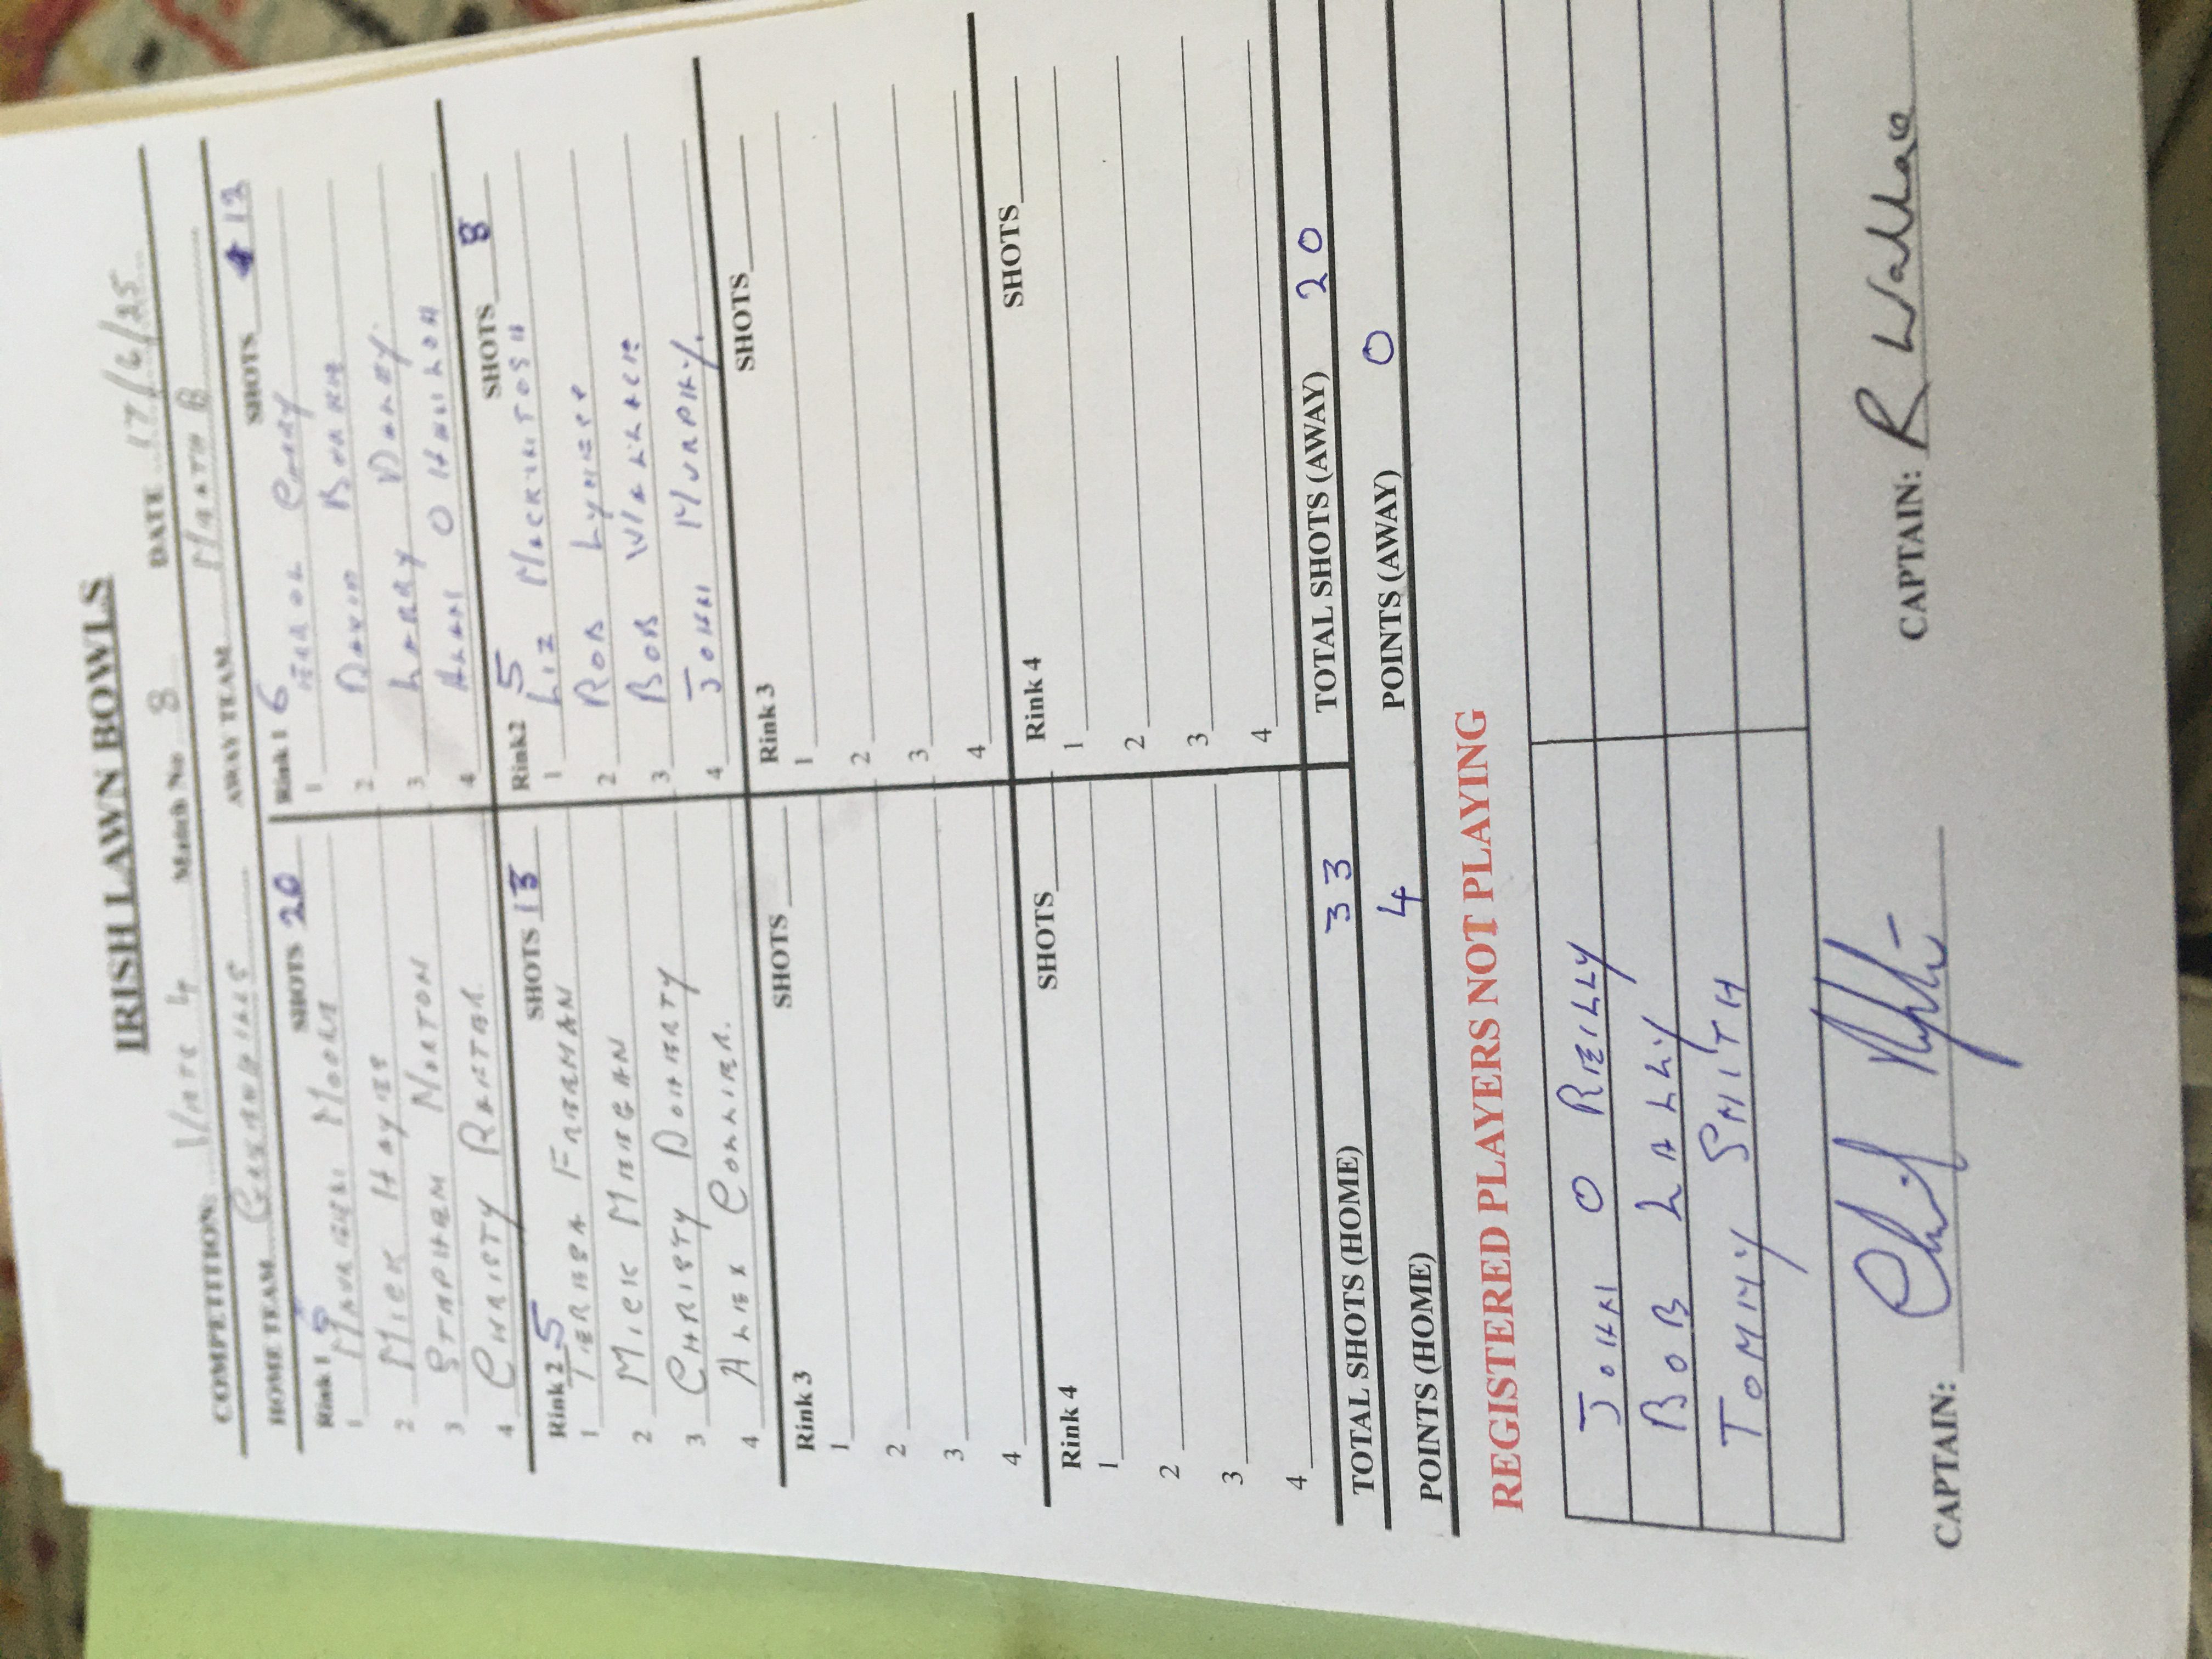 IRISH LAWN BOWLS
COMPETITION Match No. 8 DATE 17/6/25
HOME TEAM AWAY TEAM MEATH B
Rink 1 SHOTS 20 Rink 1 6 SHOTS 12
1 MAUREEN MOORE 1
2 MICK HAYES 2 DAVID BOURKE
3 STEPHEN NORTON 3 LARRY
4 CHRISTY RAFTER 4 ALAN O HANLON
Rink 2 5 SHOTS 13 Rink2 5 SHOTS 8
1 TERESA FREEMAN 1 LIZ MACKINTOSH
2 MICK MEEGAN 2 ROB
3 CHRISTY DOHERTY 3 BOB WALLACE
4 ALEX COLLIER. 4 JOHN MURPHY.
Rink 3 SHOTS Rink 3 SHOTS
1 1
2 2
3 3
4 4
Rink 4 SHOTS Rink 4 SHOTS
1 1
2 2
3 3
4 4
TOTAL SHOTS (HOME) 33 TOTAL SHOTS (AWAY) 20
POINTS (HOME) 4 POINTS (AWAY) 0
REGISTERED PLAYERS NOT PLAYING
JOHN O REILLY
BOB LALLY
TOMMY SMITH
CAPTAIN: CAPTAIN: R Wallace